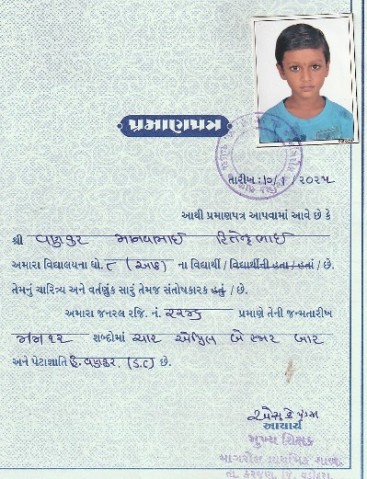 પ્રમાણપત્ર
તારીખ :૧૦/૧/૨૦૨૫
આથી પ્રમાણપત્ર આપવામાં આવે છે કે
શ્રી વણકર ભાઈ
અમારા વિદ્યાલયના ધો. ૮ (આઠ) ના વિદ્યાર્થી / વિદ્યાર્થીની હતા / હતાં / છે.
તેમનું ચારિત્ર્ય અને વર્તણુંક સારું તેમજ સંતોષકારક હતું / છે.
અમારા જનરલ રજિ. નં. પ્રમાણે તેની જન્મતારીખ
શબ્દોમાં ચાર એપ્રિલ બે હજાર બાર
અને પેટાજ્ઞાતિ હિ. વણકર. (S.C) છે.
આચાર્ય
મુખ્ય શિક્ષક
પ્રાથમિક શાળા
તા. કરજણ, જિ. વડોદરા.